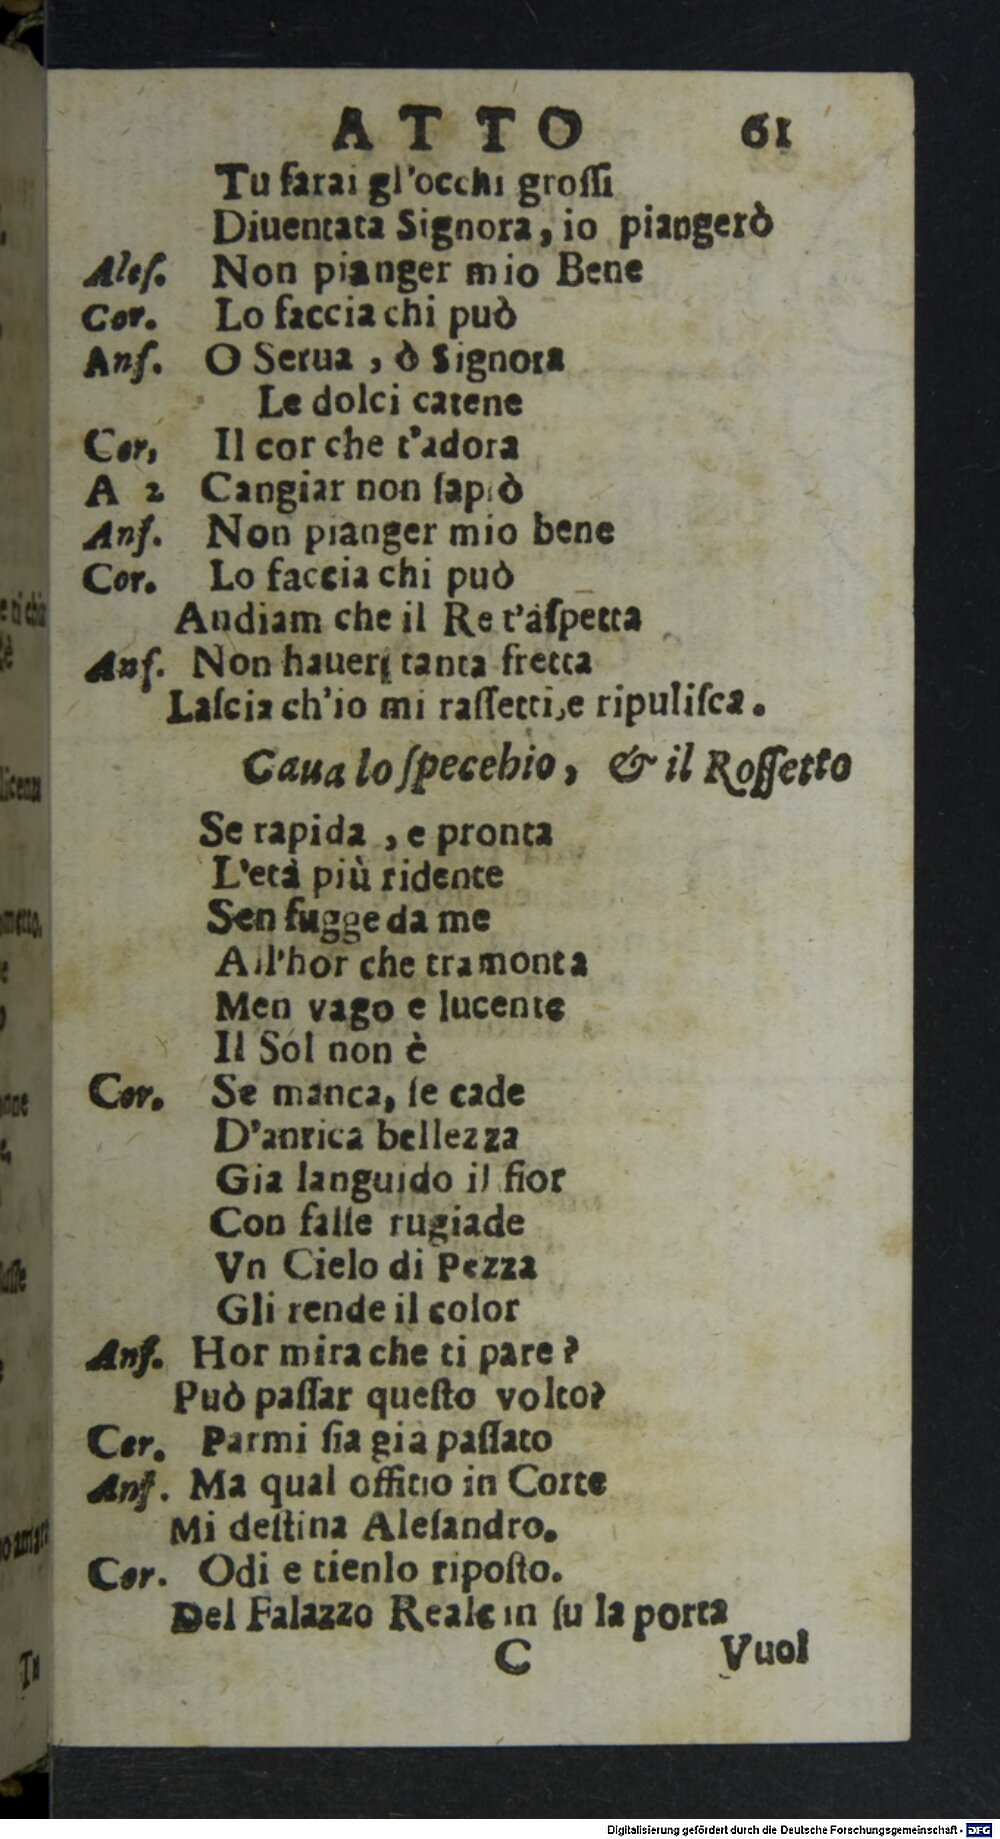 ATTO 61
Tu farai gl'occhi groſſi
Diuentata Signora, io piangerò
Aleſ. Non pianger mio Bene
Cor. Lo faccia chi può
Anſ. O Serua, ò Signora
Le dolci catene
Cor, Il cor che t'adora
A 2 Cangiar non ſaprò
Anſ. Non pianger mio bene
Cor. Lo faccia chi può
Andiam che il Re t'aſpetta
Anſ. Non hauer tanta fretta
Laſcia ch'io mi raſſetti, e ripuliſca.
Caua lo ſpecebio, & il Roſſetto
Se rapida, e pronta
L'età più ridente
Sen fugge da me
All'hor che tramonta
Men vago e lucente
Il Sol non è
Cor. Se manca, ſe cade
D'antica bellezza
Gia languido il fior
Con falſe rugiade
Vn Cielo di Pezza
Gli rende il color
Anſ. Hor mira che ti pare?
Può paſſar queſto volto?
Cor. Parmi ſia già paſſato
Anſ. Ma qual offitio in Corte
Mi deſtina Aleſandro.
Cor. Odi e tienlo ripoſto.
Del Palazzo Reale in ſu la porta
C Vuol
e ti chia
licenza
Tu
Digitalisierung gefördert durch die Deutsche Forschungsgemeinschaft - DFG